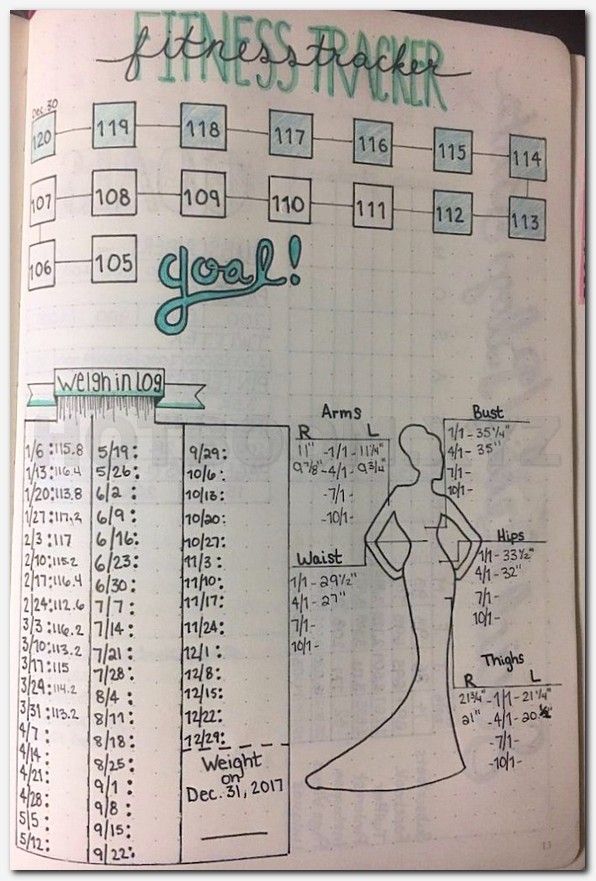 FITNESS TRACKER
fitness tracker
Dec. 30
120 119 118 117 116 115 114
107 108 109 110 111 112 113
106 105 goal!
Weigh in log
1/6:115.8
1/13:116.4
1/20:113.8
1/27:117.2
2/3:117
2/10:115.2
2/17:116.4
2/24:112.6
3/3:116.2
3/10:113.2
3/17:115
3/24:114.2
3/31:113.2
4/7:
4/14:
4/21:
4/28:
5/5:
5/12:
5/19:
5/26:
6/2:
6/9:
6/16:
6/23:
6/30:
7/7:
7/14:
7/21:
7/28:
8/4:
8/11:
8/18:
8/25:
9/1:
9/8:
9/15:
9/22:
9/29:
10/6:
10/13:
10/20:
10/27:
11/3:
11/10:
11/17:
11/24:
12/1:
12/8:
12/15:
12/22:
12/29:
Weight
on
Dec. 31, 2017
Arms
R L
11" -1/1- 11 1/4"
9 7/8" -4/1- 9 3/4"
-7/1-
-10/1-
Waist
1/1- 29 1/2"
4/1- 27"
7/1-
10/1-
Bust
1/1- 35 1/4"
4/1- 35"
7/1-
10/1-
Hips
1/1- 33 1/2"
4/1- 32"
7/1-
10/1-
Thighs
R L
21 3/4" -1/1- 21 1/4"
21" -4/1- 20
-7/1-
-10/1-
13